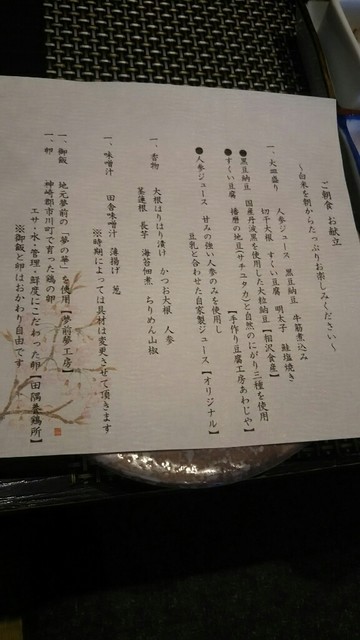 ご朝食 お献立
～白米を朝からたっぷりお楽しみください～
一、大皿盛り 人参ジュース 黒豆納豆 牛筋煮込み
切干大根 すくい豆腐 明太子 鮭塩焼き
●黒豆納豆 国産丹波黒を使用した大粒納豆【相沢食産】
●すくい豆腐 播磨の地豆(サチユタカ)と自然のにがり三種を使用
【手作り豆腐工房あわじや】
●人参ジュース 甘みの強い人参のみを使用し
豆乳と合わせた自家製ジュース【オリジナル】
一、香物 大根はりはり漬け かつお大根 人参
茎蓮根 長芋 海苔佃煮 ちりめん山椒
一、味噌汁 田舎味噌汁 薄揚げ 葱
※時期によっては具材は変更させて頂きます
一、御飯 地元夢前の「夢の華」を使用【夢前夢工房】
一、卵 神崎郡市川町で育った鶏の卵
エサ・水・管理・鮮度にこだわった卵【田隅養鶏所】
※御飯と卵はおかわり自由です